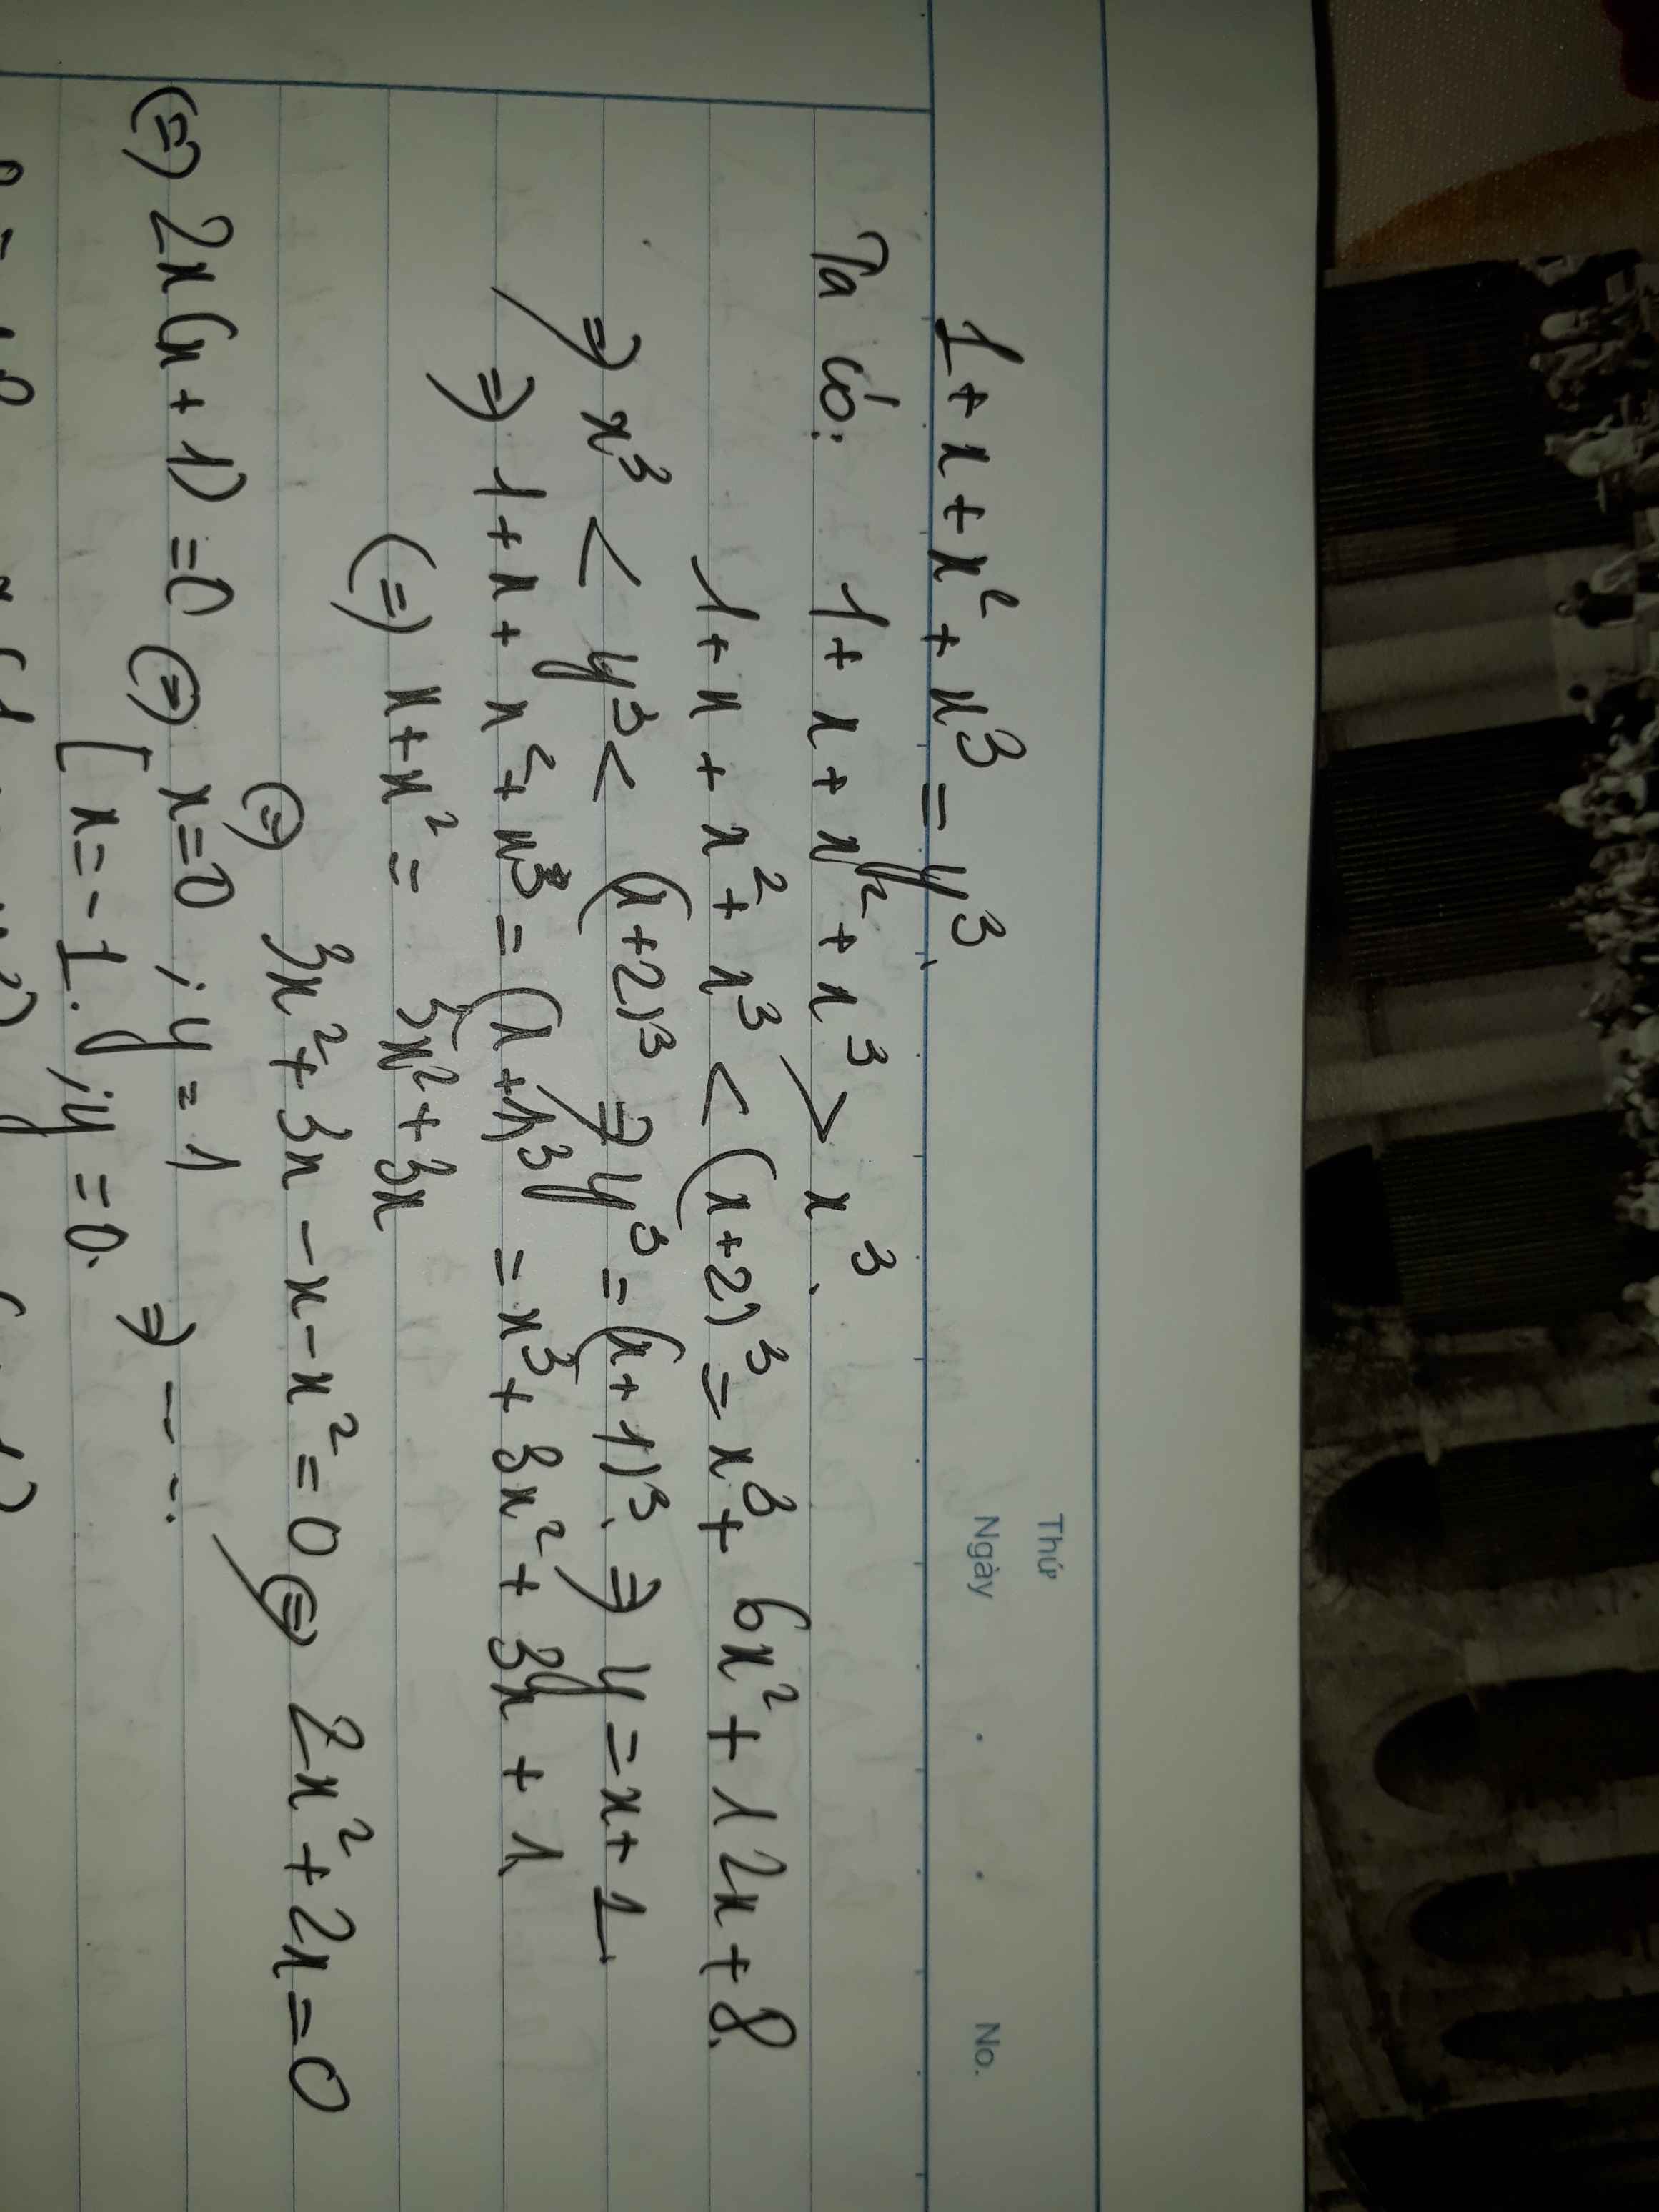 Thứ
Ngày . . No.
1 + x + x² + x³ = y³.
Ta có: 1 + x + x² + x³ > x³.
1 + x + x² + x³ < (x+2)³ = x³ + 6x² + 12x + 8.
⇒ x³ < y³ < (x+2)³ ⇒ y³ = (x+1)³. ⇒ y = x + 1
⇒ 1 + x + x² + x³ = (x+1)³ = x³ + 3x² + 3x + 1
(=) x + x² = 3x² + 3x
(=) 3x² + 3x - x - x² = 0 (=) 2x² + 2x = 0
(=) 2x(x + 1) = 0 (=) [ x = 0 ; y = 1 ⇒ ---.
x = -1. ; y = 0.